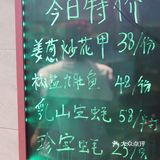 今日特价
姜葱炒花甲 38/份
椒盐九肚鱼 48/份
乳山宝蚝 58/
珍宝宝蚝 25/
大众点评